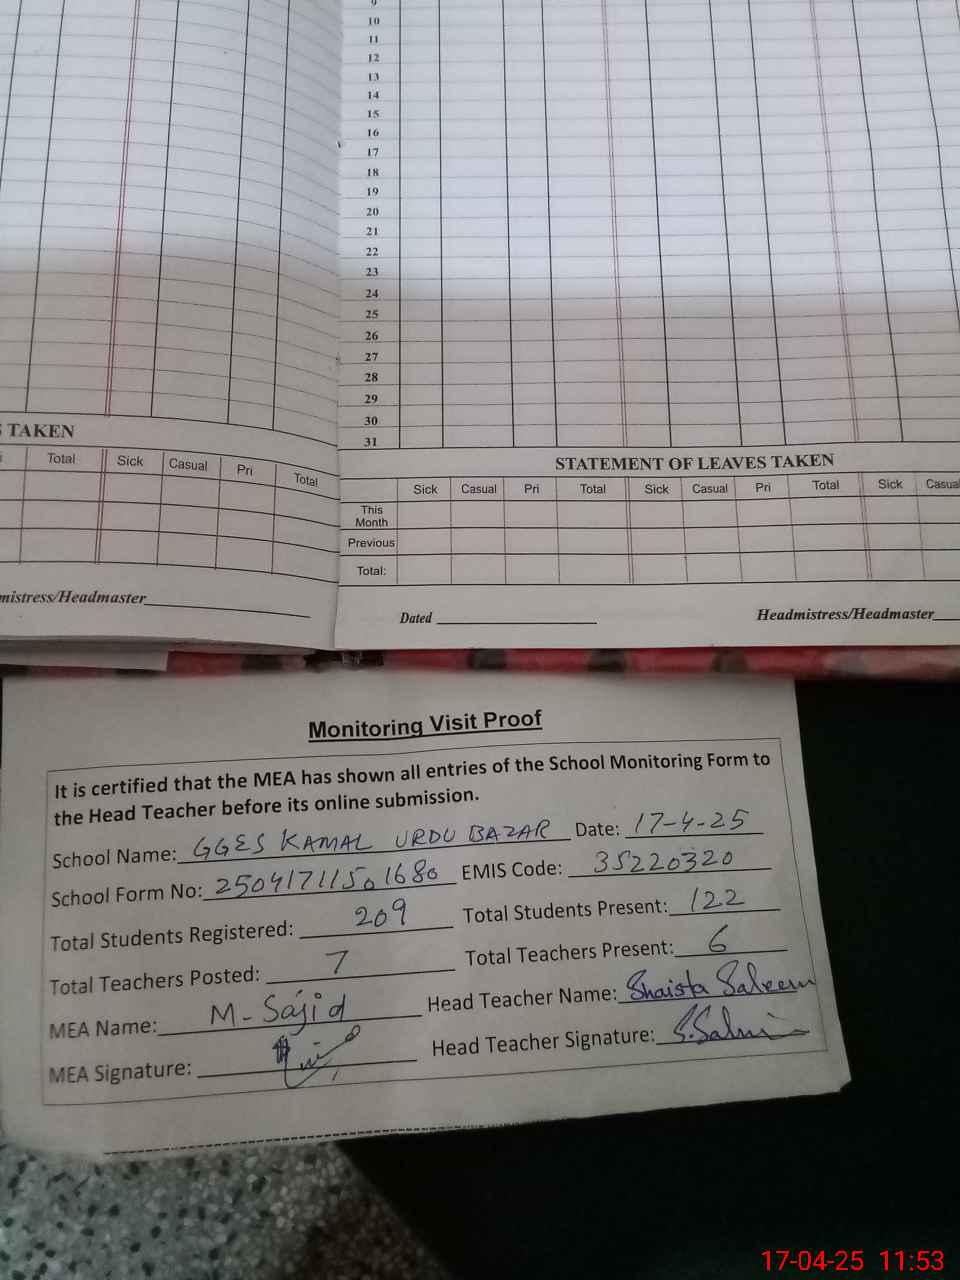 9
10
11
12
13
14
15
16
17
18
19
20
21
22
23
24
25
26
27
28
29
30
31
TAKEN
Total Sick Casual Pri Total
mistress/Headmaster
STATEMENT OF LEAVES TAKEN
Sick Casual Pri Total Sick Casual Pri Total Sick Casual
This Month
Previous
Total:
Dated Headmistress/Headmaster
Monitoring Visit Proof
It is certified that the MEA has shown all entries of the School Monitoring Form to
the Head Teacher before its online submission.
School Name: GGES KAMAL URDU BAZAR Date: 17-4-25
School Form No: 25041711501680 EMIS Code: 35220320
Total Students Registered: 209 Total Students Present: 122
Total Teachers Posted: 7 Total Teachers Present: 6
MEA Name: M-Sajid Head Teacher Name: Shaista Saleem
MEA Signature: Head Teacher Signature: S.Salmi
17-04-25 11:53